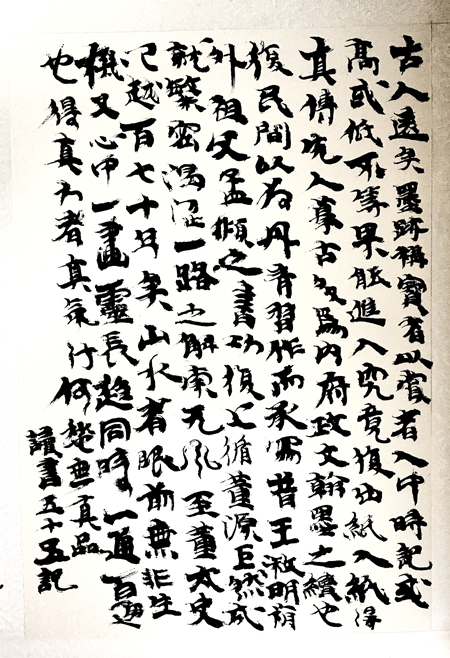 古人遠矣墨跡稱寶者以賓者入中時記或
高或低不等果能進入究竟復出紙入紙得
真傳究入摹古為內府政文翰墨之續也
復民間以為丹青習作而承寫昔王叔明
外祖父孟頫之書功復上循董源巨然成
就繁密一路之解東元至董太史
已越百七十年矣山水者眼前無非生
機又心中一畫靈長趨同時一通百
也得真力者真氣行何愁無真品
讀書五十五記